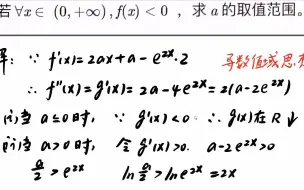 若 ∀x∈ (0,+∞),f(x)<0 ，求 a 的取值范围。
解: ∵ f'(x)=2ax+a-e^{2x}·2 导数值域思想
∴ f''(x)=g'(x)=2a-4e^{2x}=2(a-2e^{2x})
(i)当 a≤0时, ∵ g'(x)<0 ∴ g(x)在R↓
(ii)当 a>0时, 令g'(x)>0. a-2e^{2x}>0
a/2>e^{2x} ln a/2>lne^{2x}=2x